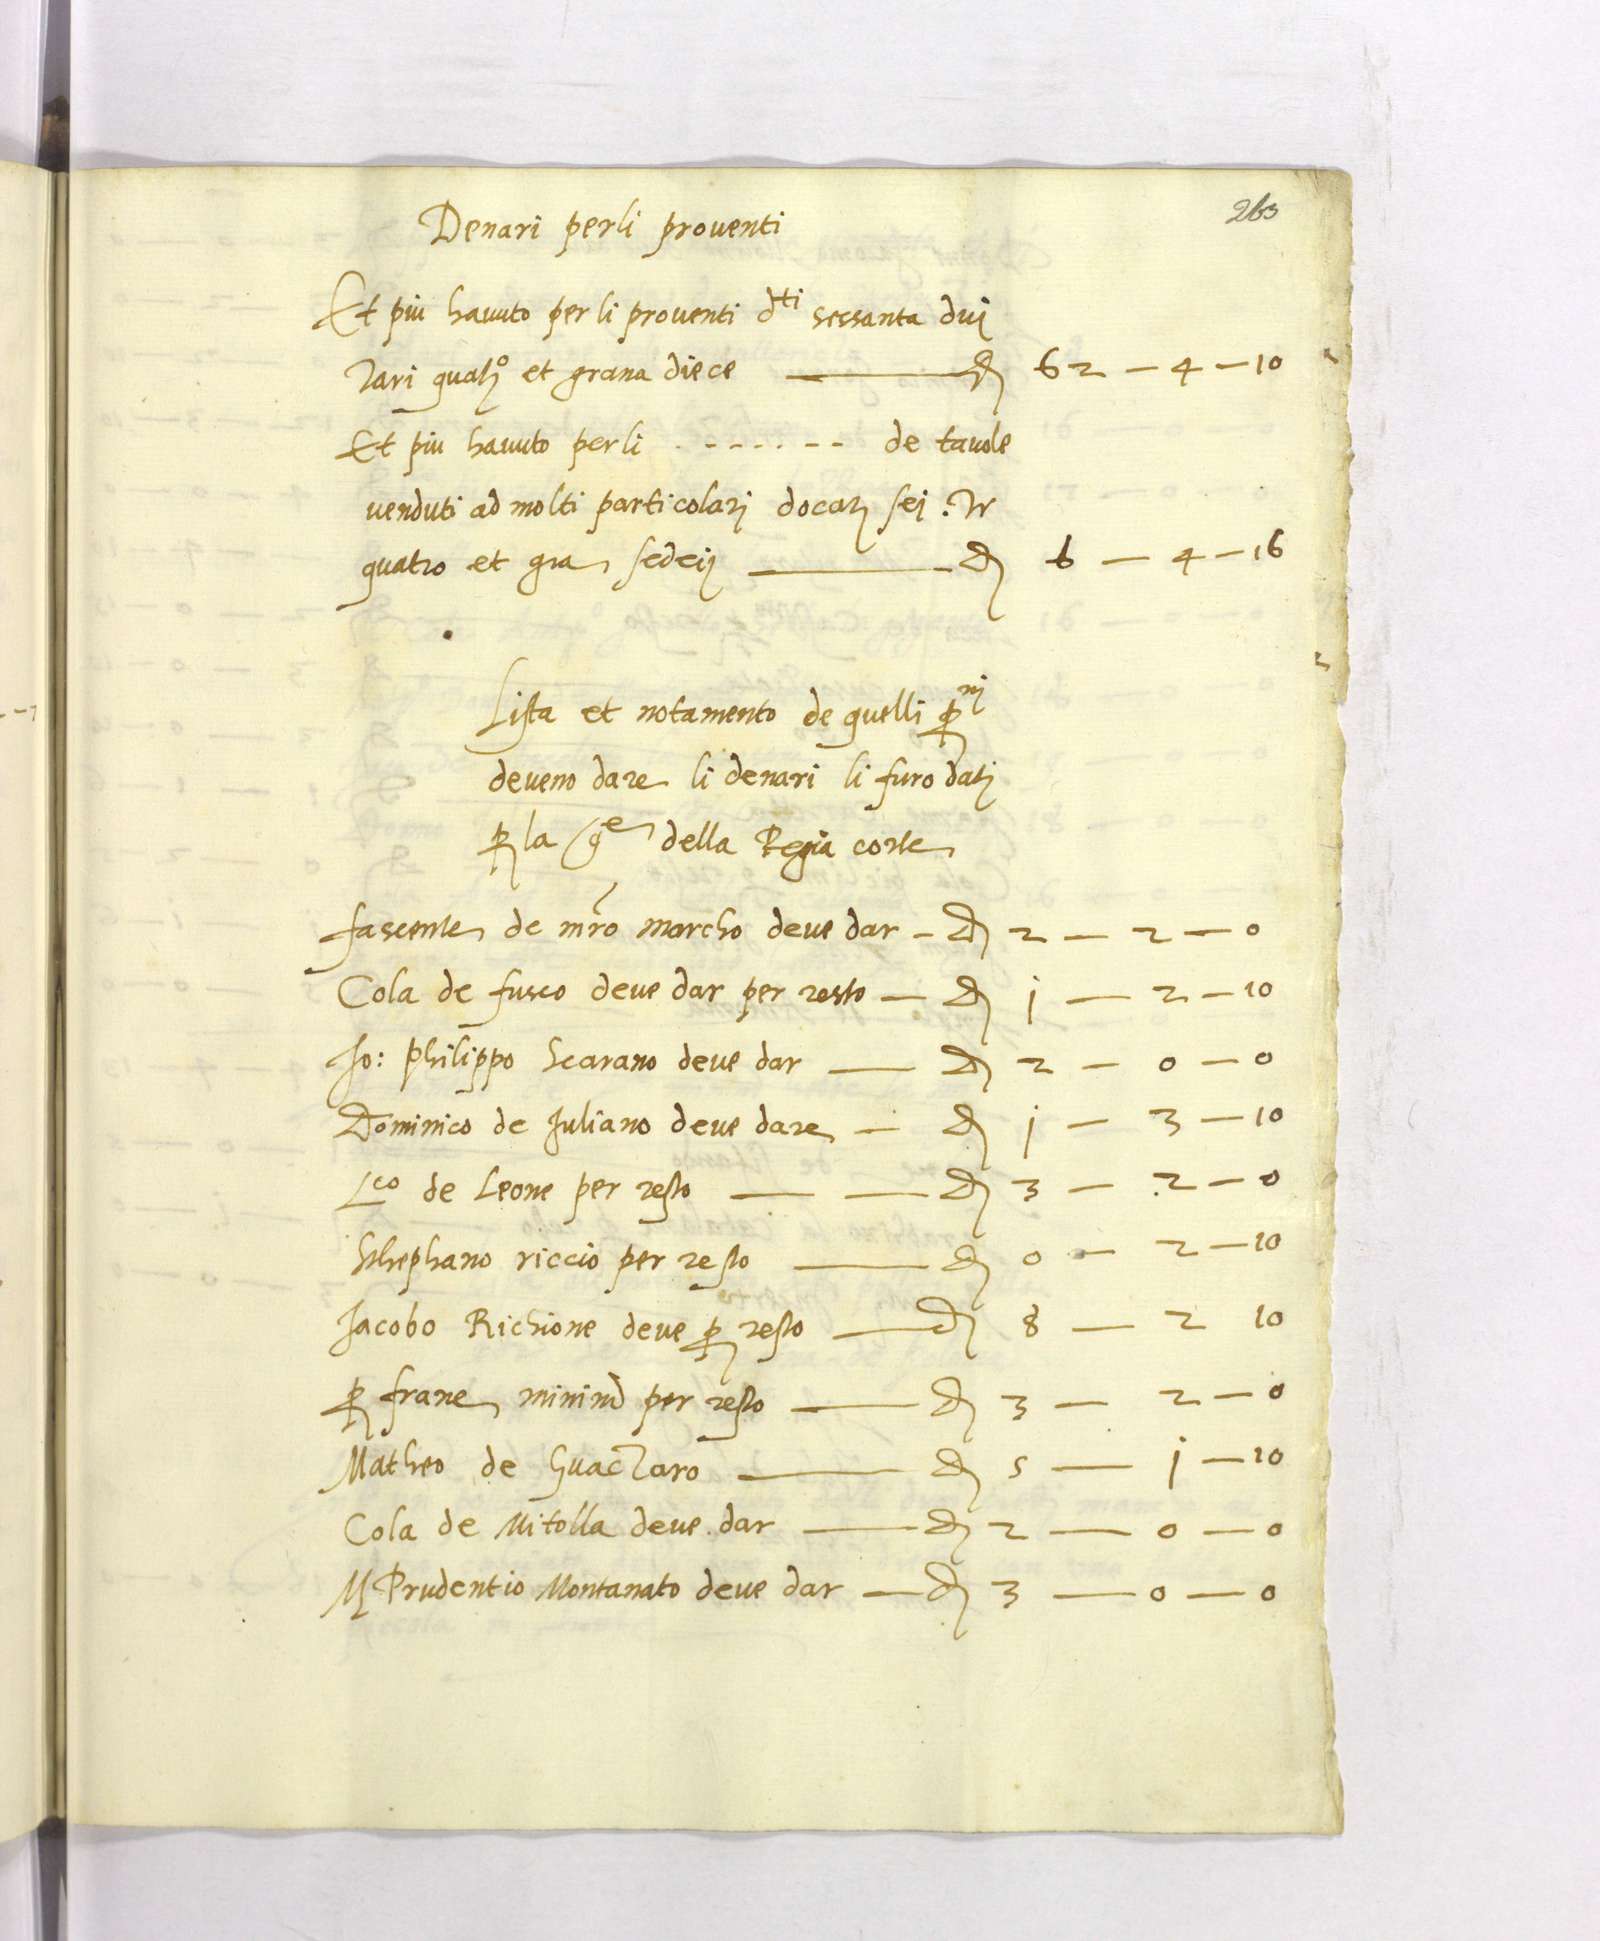 263
Denari perli proventi
Et piu havuto per li proventi dti sessanta dui
Tari quatro et grana diece — 62 — 4 — 10
Et piu havuto perli . - - - . - - de tavole
venduti ad molti particolarj docarj sej . Tr
quatro et gra sedeij — 6 — 4 — 16
Lista et notamento de quelli
deveno dare li denari li furo datj
la della Regia corte
fascente de mro marcho deve dar — 2 — 2 — 0
Cola de fusco deve dar per resto — j — 2 — 10
Jo: Philippo Scarano deve dar — 2 — 0 — 0
Dominico de Juliano deve dare — j — 3 — 10
Lco de Leone per resto — 3 — 2 — 0
Sthephano riccio per resto — 0 — 2 — 10
Jacobo Richione deve p resto — 8 — 2 10
per resto — 3 — 2 — 0
Matheo de — 5 — j — 10
Cola de Mitolla deve dar — 2 — 0 — 0
M Prudentio Montanato deve dar — 3 — 0 — 0